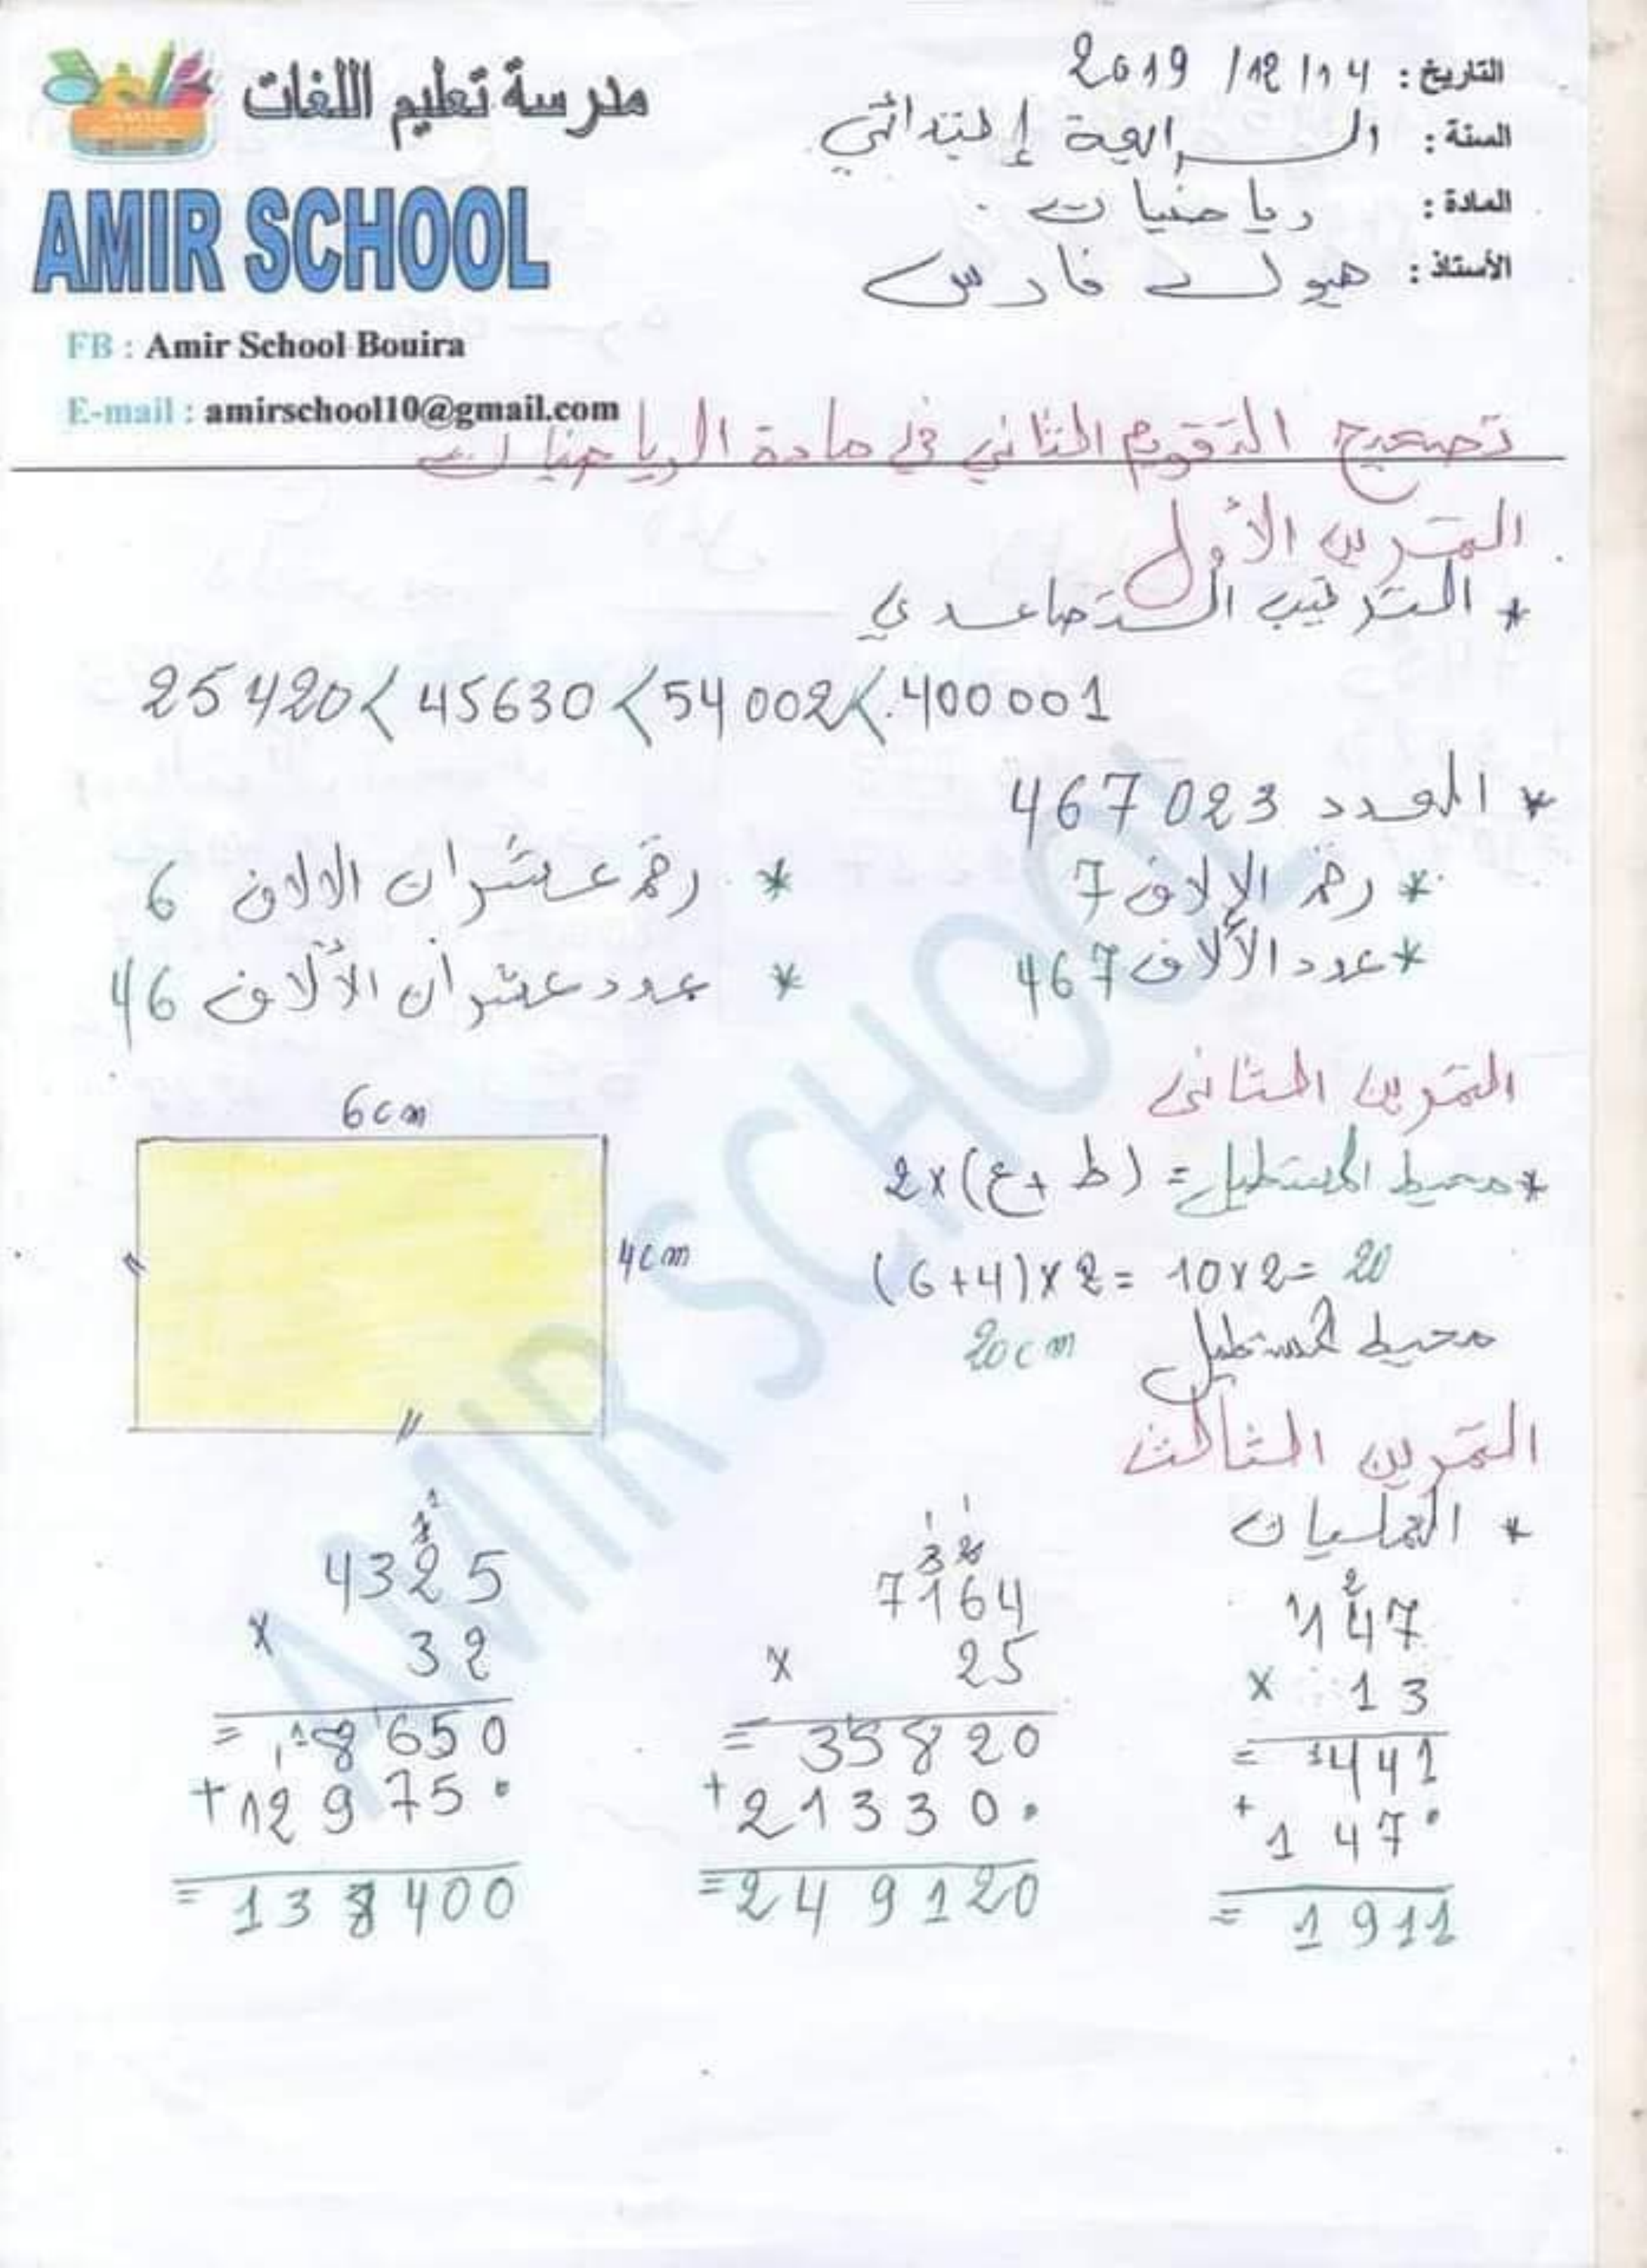 مدرسة تعليم اللغات
AMIR SCHOOL
FB : Amir School Bouira
E-mail : amirschool10@gmail.com
التاريخ : 14/12/2019
السنة : الرابعة إبتدائي
المادة : رياضيات
الأستاذ : فارس
تصحيح التقويم الثاني في مادة الرياضيات
التمرين الأول
* الترتيب التصاعدي
25 420 < 45630 < 54 002 < 400 001
* العدد 467 023
* رقم الالاف 7
* رقم عشرات الالاف 6
* عدد الألاف 467
* عدد عشرات الألاف 46
التمرين الثاني
* محيط المستطيل = (ط + ع) × 2
6cm
4cm
(6+4)×2= 10×2= 20
محيط المستطيل 20cm
التمرين الثالث
* العمليات
2
147
× 13
= 441
+ 147•
= 1911
1 1
3 2
7164
× 25
= 35820
+ 21330•
= 249120
1
1
4325
× 32
= 8650
+ 12975•
= 138400
AMIR SCHOOL